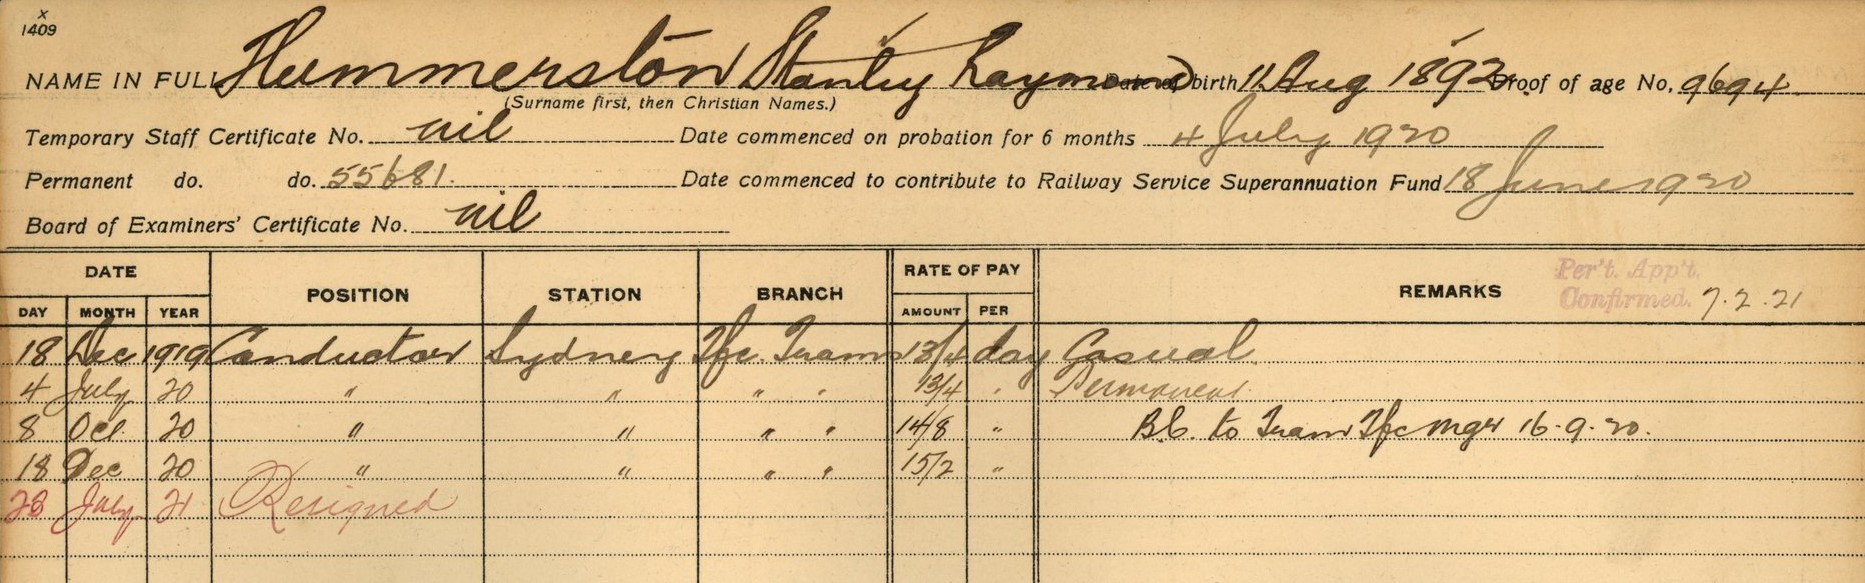 x
1409
NAME IN FULL Hummerston Stanley Raymond Date of birth 11 Aug 1892 Proof of age No. 9694
(Surname first, then Christian Names.)
Temporary Staff Certificate No. nil Date commenced on probation for 6 months 4 July 1920
Permanent do. do. 55681. Date commenced to contribute to Railway Service Superannuation Fund 18 June 1920
Board of Examiners' Certificate No. nil
DATE POSITION STATION BRANCH RATE OF PAY REMARKS Per't. App't. Confirmed. 7.2.21
DAY MONTH YEAR AMOUNT PER
18 Dec 1919 Conductor Sydney Tfc. Trams 13/4 day Casual
4 July 20 " " " " 13/4 " Permanent
8 Oct 20 " " " " 14/8 " B.C. to Tram Tfc mgr 16.9.20.
18 Dec 20 " " " " 15/2 "
23 July 21 Resigned